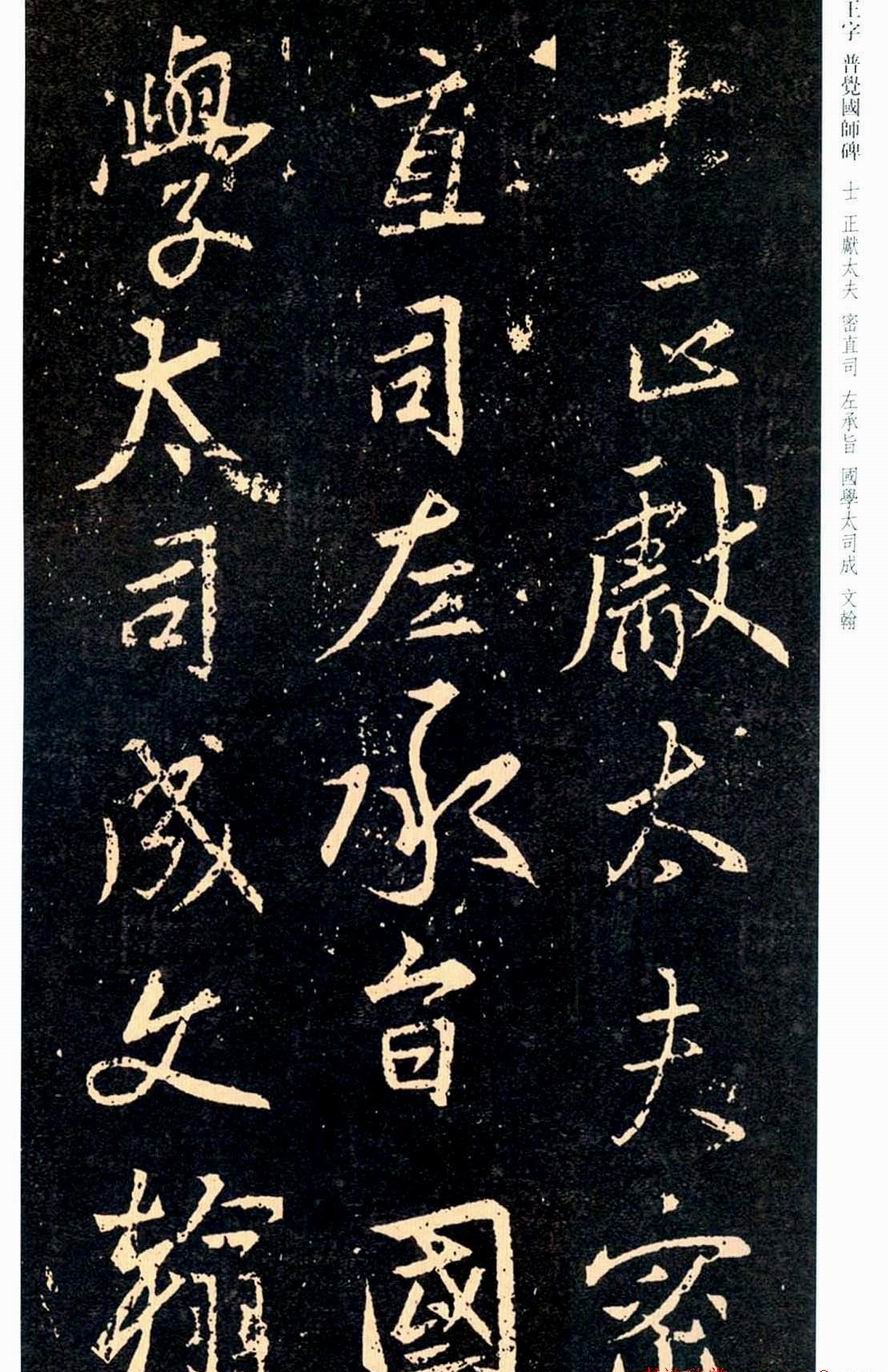 士正獻太夫密
直司左承旨國
學太司成文翰
王字 普覺國師碑 士 正獻太夫 密直司 左承旨 國學太司成 文翰